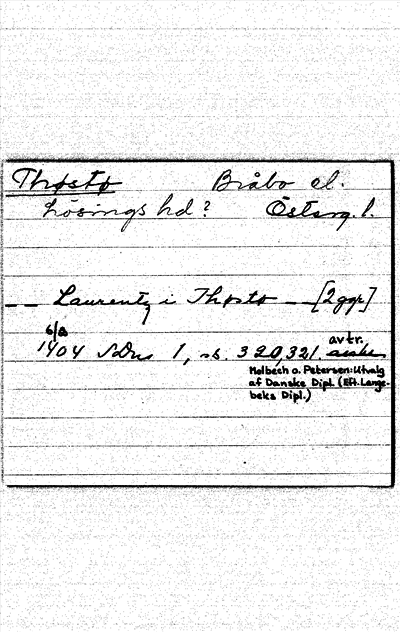 Thøstø Bråbo el.
Lösings hd? Österg. l.
__ Laurentz i Thøstø __ [2 ggr]
6/8
1404 SDns 1, s. 320, 321. avtr.
Molbech o. Petersen: Utvalg
af Danske Dipl. (Eft. Lange-
beks Dipl.)